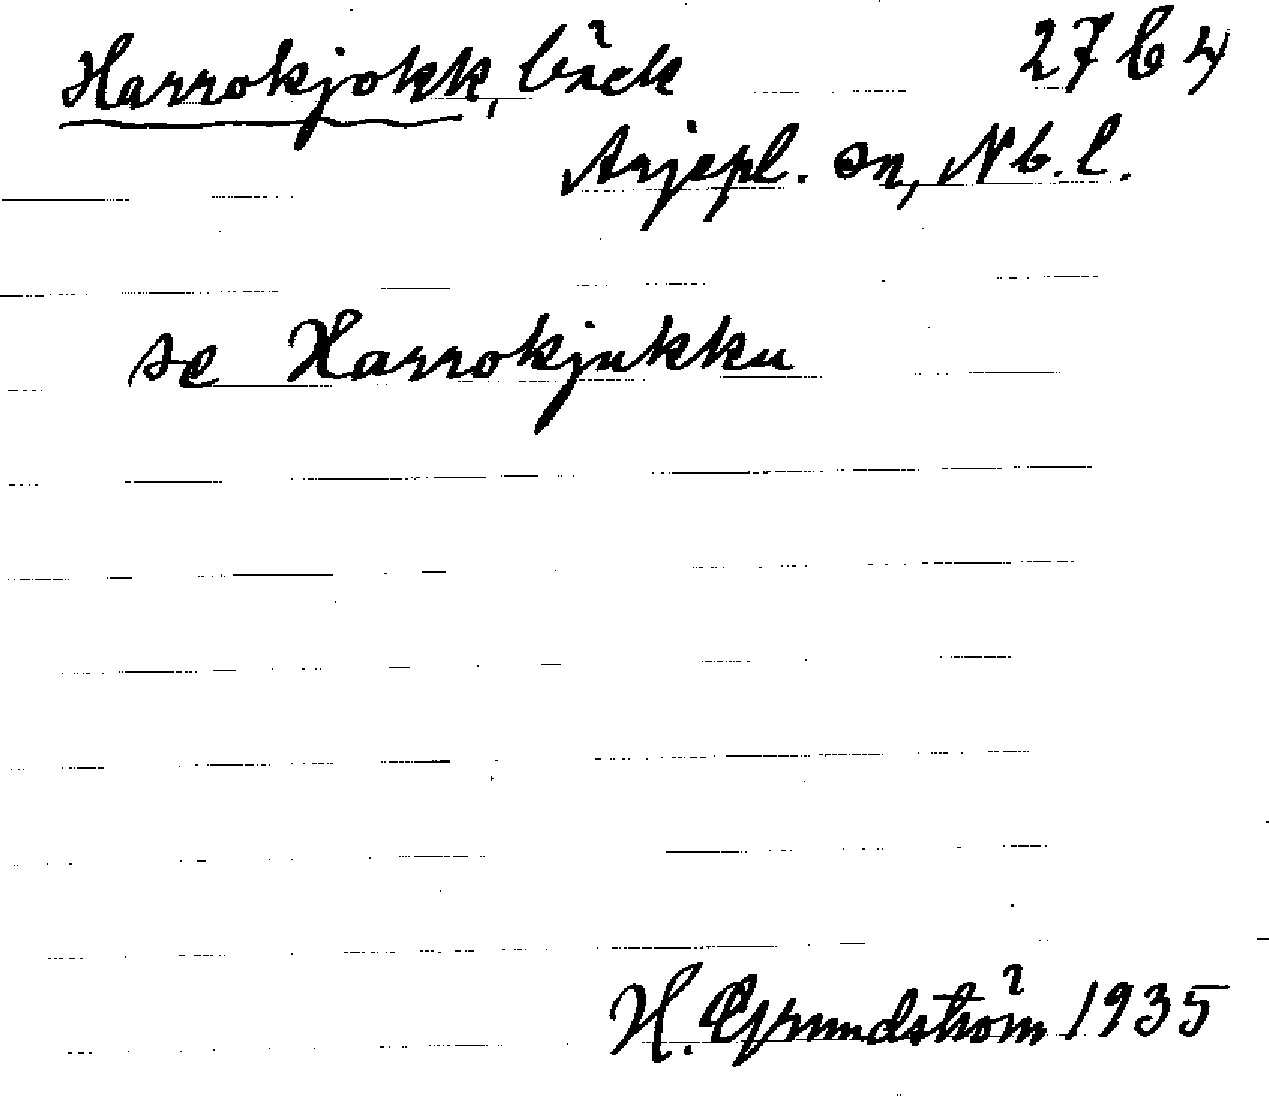 Harrokjokk, bäck 27 C 4
Arjepl. sn, Nb. l.
se Harrokjukku
H. Grundström 1935